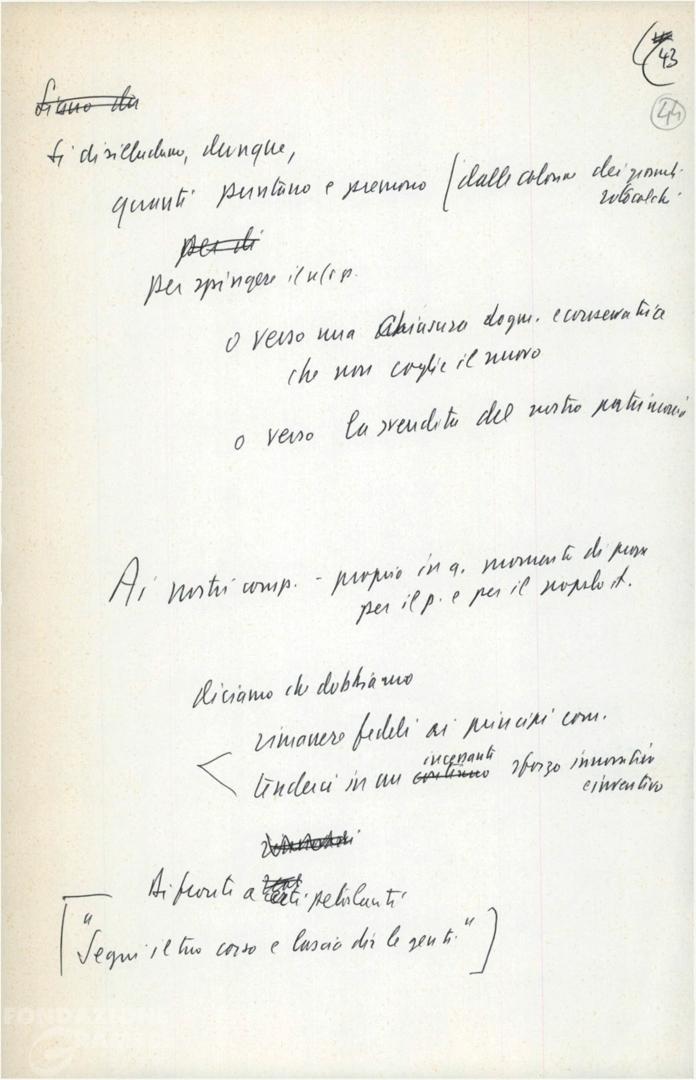 43
44
Siano du
Si disilludano, dunque,
quanti puntano e premono (dalle colonne dei giornali
rotocalchi
per di
per spingere il n/s p.
o verso una chiusura dogm. e conservatrice
che non coglie il nuovo
o verso la svendita del nostro patrimonio
Ai nostri comp. - proprio in q. momenti di prova
per il p. e per il popolo it.
diciamo che dobbiamo
rimanere fedeli ai principi com.
incessante
tenderci in un continuo sforzo innovativo
e inventivo
Di fronte a certi petulanti
["Segui il tuo corso e lascia dir le genti."]
FONDAZIONE
GRAMSCI